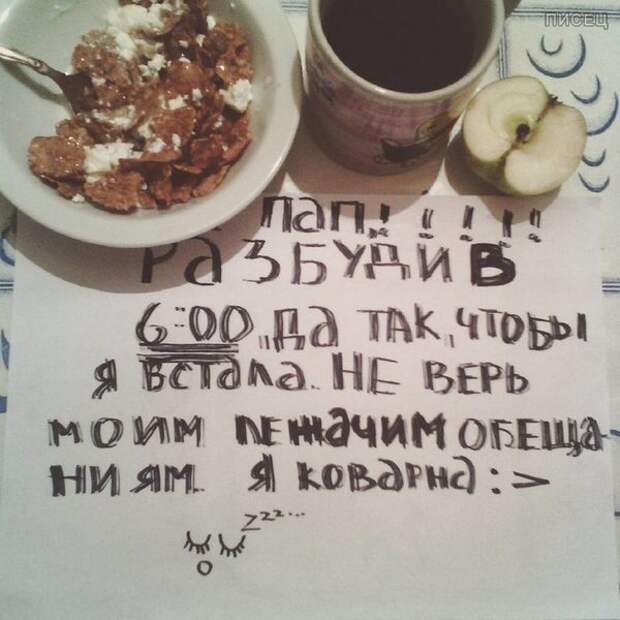 писец
Пап!!!!!
РАЗБУДИ В
6:00, да ТАК, чтобы
я встала. НЕ ВЕРЬ
моим лежачим обеща-
ниям. Я коварна :>
zzz...